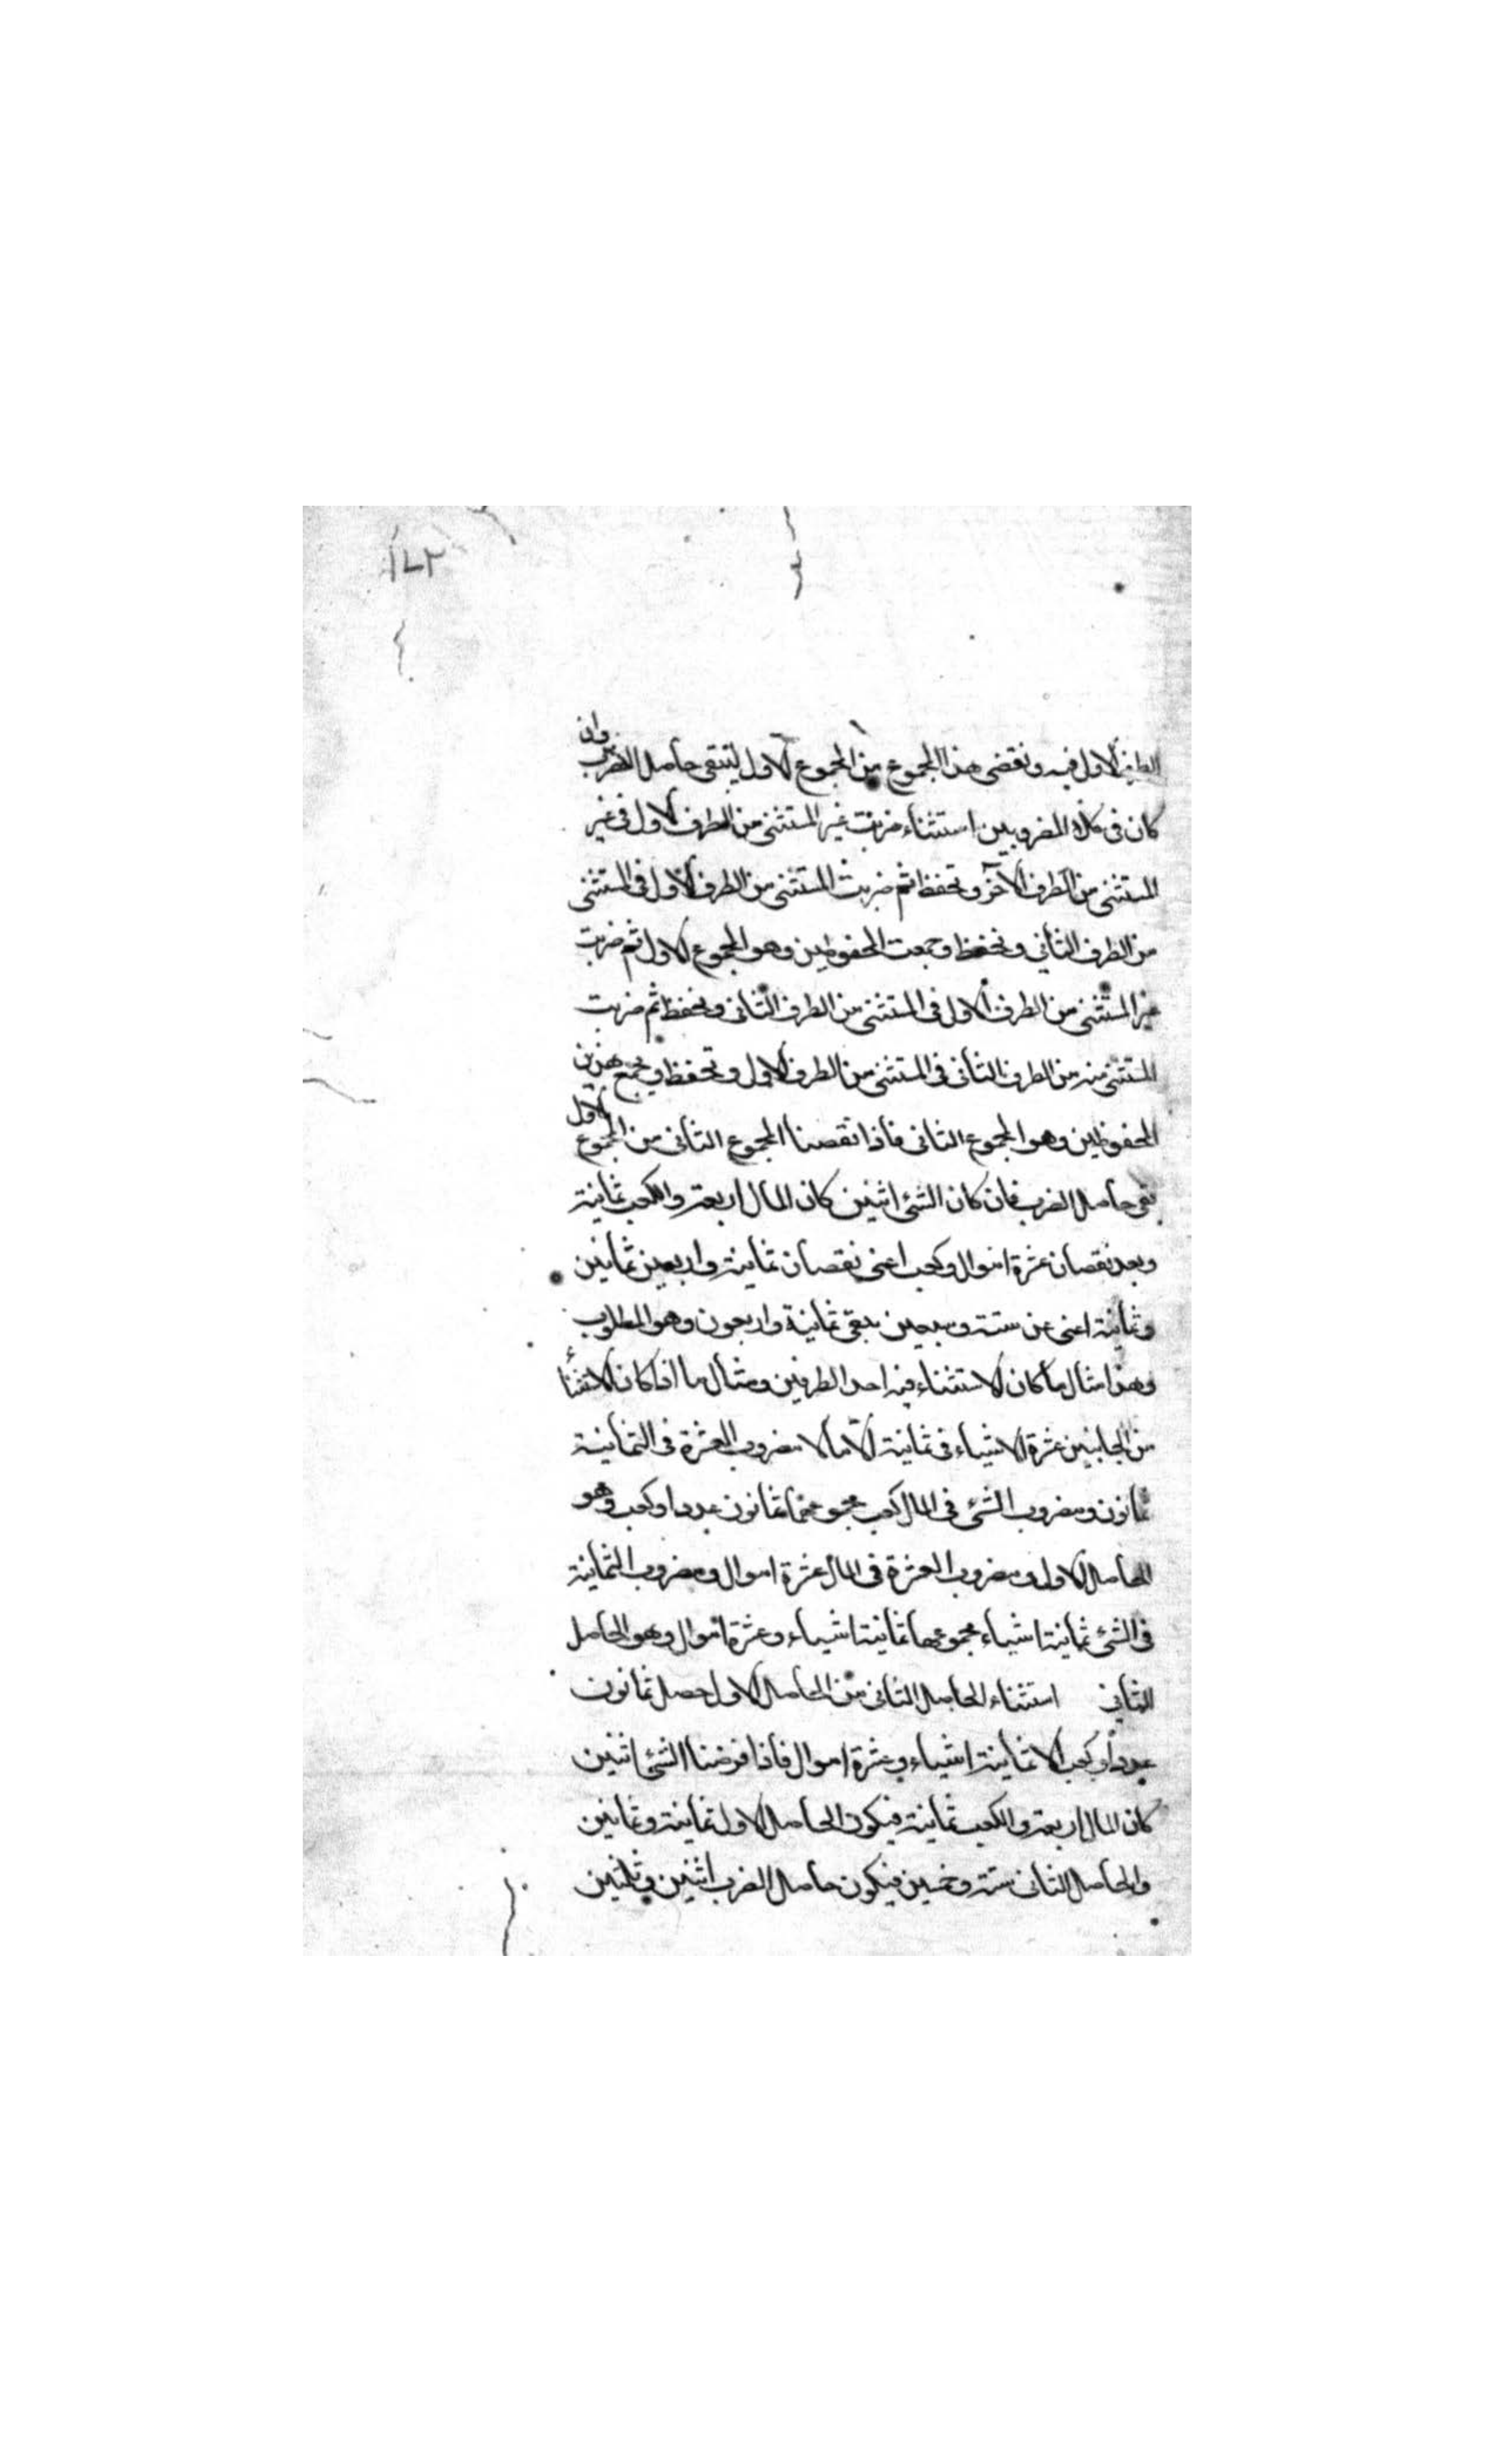 ١٧٢
الطرف الاول فيه وننقص هذا المجموع من المجموع الاول ليبقى حاصل الضرب وان
كان فى كلا المضروبين استثناء ضربت غير المستثنى من الطرف الاول فى غير
المستثنى من الطرف الآخر وتحفظ ثم ضربت المستثنى من الطرف الاول فى المستثنى
من الطرف الثانى وتحفظ وجمعت المحفوظين وهو المجموع الاول ثم ضربت
غير المستثنى من الطرف الاول فى المستثنى من الطرف الثانى وتحفظ ثم ضربت
المستثنى منه من الطرف الثانى فى المستثنى من الطرف الاول وتحفظ ويجمع هذين
المحفوظين وهو المجموع الثانى فاذا نقصنا المجموع الثانى من المجموع الاول
بقى حاصل الضرب فان كان الشئ اثنين كان المال اربعة والكعب ثمانية
وبعد نقصان عشرة اموال وكعب اعنى نقصان ثمانية واربعين ثمانين
وثمانية اعنى عن ستة وسبعين يبقى ثمانية واربعون وهو المطلوب
وهذا مثال ما كان الاستثناء فيه احد الطرفين ومثال ما اذا كان الاستثناء
من الجانبين عشرة الا شياء فى ثمانية الا مالا مضروب العشرة فى الثمانية
ثمانون ومضروب الشئ فى المال كعب مجموعهما ثمانون عددا وكعب وهو
الحاصل الاول ومضروب العشرة فى المال عشرة اموال ومضروب الثمانية
فى الشئ ثمانية اشياء مجموعها ثمانية اشياء وعشرة اموال وهو الحاصل
الثانى استثناء الحاصل الثانى من الحاصل الاول حصل ثمانون
عددا وكعب الا ثمانية اشياء وعشرة اموال فاذا فرضنا الشئ اثنين
كان المال اربعة والكعب ثمانية فيكون الحاصل الاول ثمانية وثمانين
والحاصل الثانى ستة وخمسين فيكون حاصل الضرب اثنين وثلثين